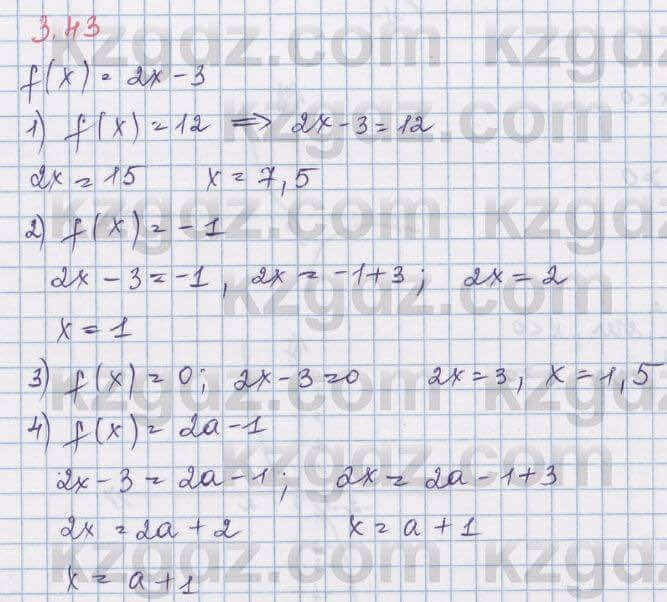 3.43
f(x) = 2x - 3
1) f(x) = 12 => 2x - 3 = 12
2x = 15 x = 7,5
2) f(x) = -1
2x - 3 = -1, 2x = -1+3; 2x = 2
x = 1
3) f(x) = 0; 2x - 3 = 0 2x = 3, x = 1,5
4) f(x) = 2a - 1
2x - 3 = 2a - 1; 2x = 2a - 1 + 3
2x = 2a + 2 x = a + 1
x = a + 1
kzgdz.com
kzgdz.com
kzgdz.com
kzgdz.com
kzgdz.com
kzgdz.com
kzgdz.com